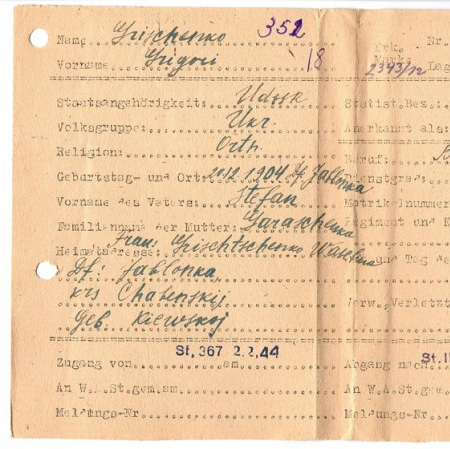 Name Grischenko 352 Nr.
Vorname Grigori 18 Erk. Mark. Lag
2343/12
Staatsangehörigkeit: Udssk Statist.Bez.:
Volksgruppe: Ukr. Anerkannt als:
Religion: Orth. Beruf:
Geburtstag- und Ort: 20.12.1904 Df. Jablonka Dienstgrad:
Vorname des Vaters: Stefan Matrikelnummer
Familienname der Mutter: Garaschenko Regiment und
Heimatadresse: Frau: Grischtschenko und Tag de
Df: Jablonka,
Krs Chabenskij Verletzt
Geb. Kiewskoj
St. 367 2.2.44
Zugang von am Abgang nach St.
An W.A.St.gem.am An W.A.St.gem.
Meldungs-Nr Meldungs-Nr